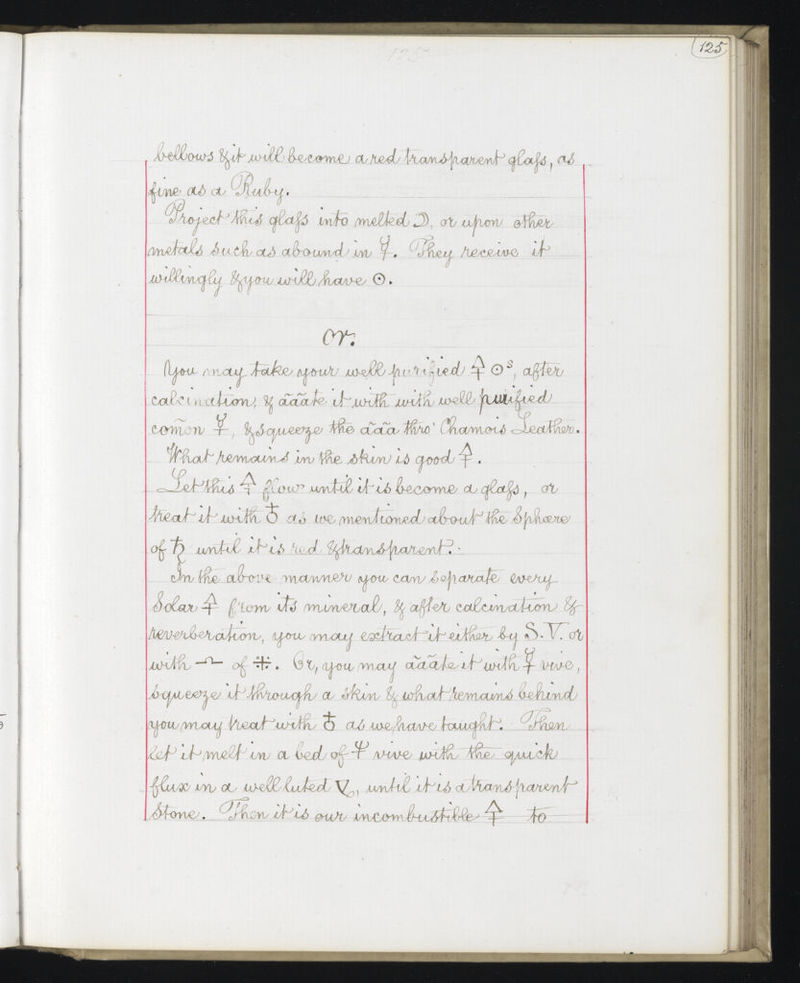 125
bellows & it will become a red transparent glaſs, as
fine as a Ruby.
Project this glaſs into melted ☽. or upon other
metals such as abound in ☿. They receive it
willingly & you will have ☉.
Or.
You may take your well purified 🜍 ☉s, after
calcination, & ããate it with with well purified
com̃on ☿, & squeeze the aãa thro' Chamois Leather.
What remains in the skin is good 🜍.
Let this 🜍 flow until it is become a glaſs, or
treat it with ♁ as we mentioned about the Sphære
of ♄ until it is red & transparent.
In the above manner you can separate every
Solar 🜍 from its mineral, & after calcination &
reverberation, you may extract it either by S. V. or
with of . Or, you may ãããte it with ☿ vive,
squeeze it through a skin & what remains behind
you may treat with ♁ as we have taught. Then
let it melt in a bed of vive with the quick
flux in a well luted , until it is a transparent
Stone. Then it is our incombustible 🜍 to